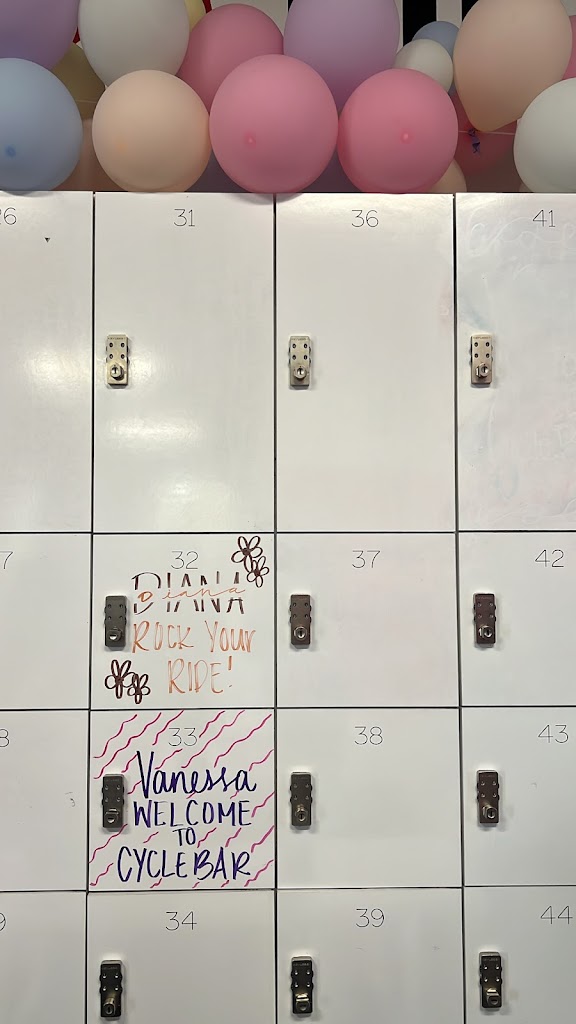 26
31
36
41
27
32
37
42
DIANA
Diana
ROCK YOUR
RIDE!
28
33
38
43
Vanessa
WELCOME
TO
CYCLEBAR
29
34
39
44